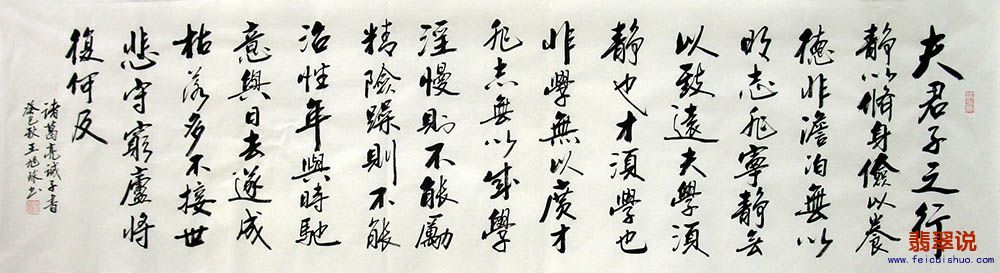 夫君子之行
靜以脩身儉以養
德非澹泊無以
明志非寧靜无
以致遠夫學須
靜也才須學也
非學無以廣才
非志無以成學
淫慢則不能勵
精險躁則不能
治性年與時馳
意與日去遂成
枯落多不接世
悲守窮廬將
復何及
諸葛亮誡子書
癸巳秋王旭林书
翡翠说
www.feicuishuo.com